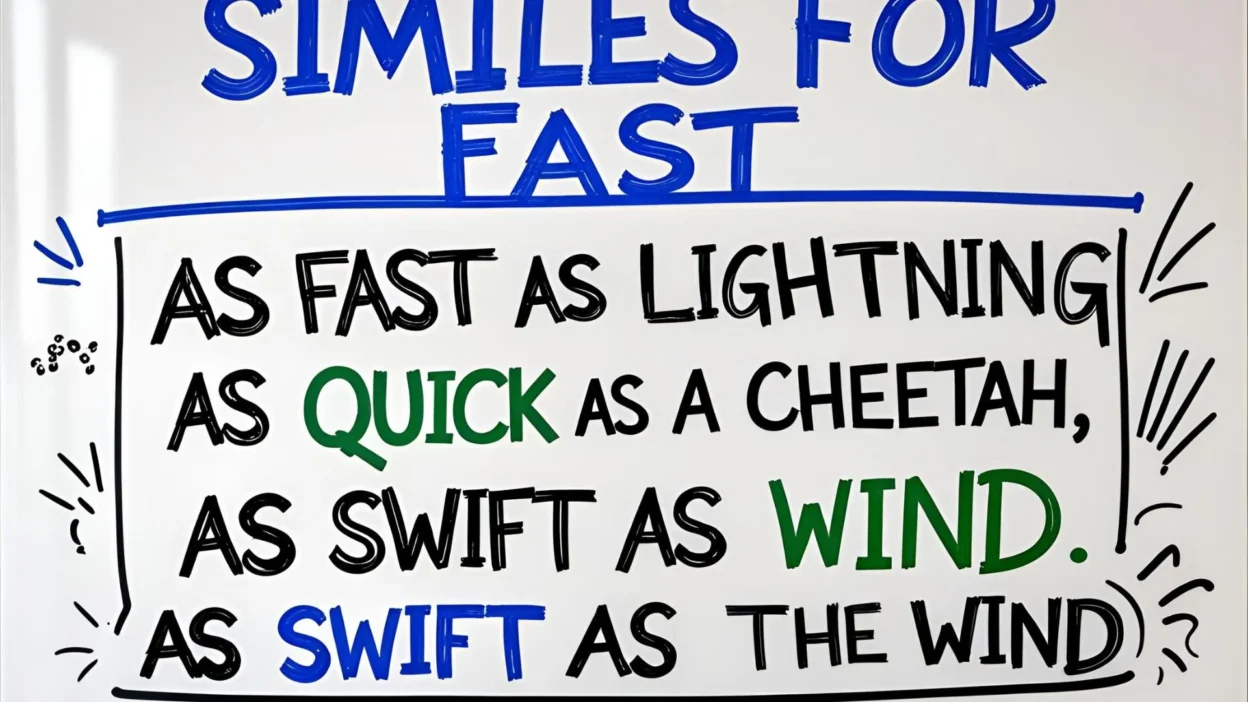 SIMILES FOR
FAST
AS FAST AS LIGHTNING
AS QUICK AS A CHEETAH,
AS SWIFT AS WIND.
AS SWIFT AS THE WIND